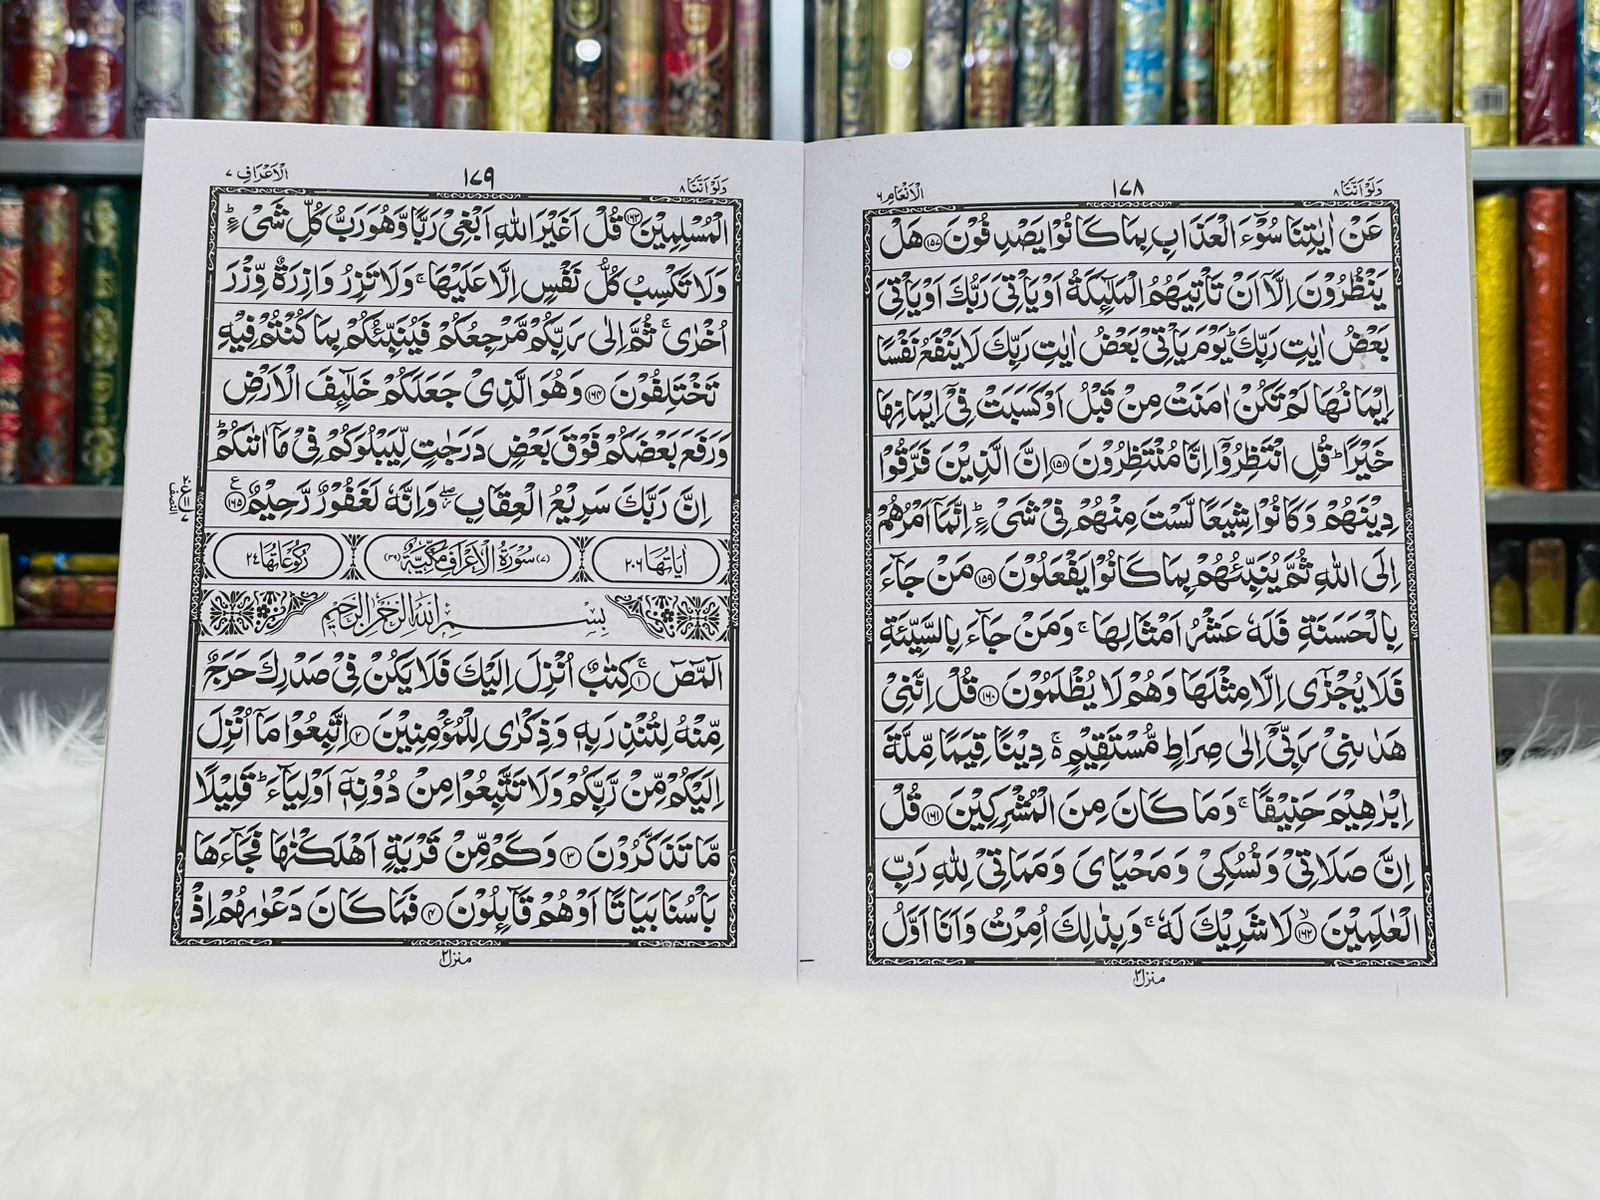 وَلَوْاَنَّنَا ٨
١٧٨
الْاَنْعَام ٦
عَنْ اٰيٰتِنَا سُوْٓءَ الْعَذَابِ بِمَا كَانُوْا يَصْدِفُوْنَ ﴿١٥٧﴾ هَلْ
يَنْظُرُوْنَ اِلَّاۤ اَنْ تَاْتِيَهُمُ الْمَلٰٓئِكَةُ اَوْ يَاْتِيَ رَبُّكَ اَوْ يَاْتِيَ
بَعْضُ اٰيٰتِ رَبِّكَ ؕ يَوْمَ يَاْتِيْ بَعْضُ اٰيٰتِ رَبِّكَ لَا يَنْفَعُ نَفْسًا
اِيْمَانُهَا لَمْ تَكُنْ اٰمَنَتْ مِنْ قَبْلُ اَوْ كَسَبَتْ فِيْۤ اِيْمَانِهَا
خَيْرًا ؕ قُلِ انْتَظِرُوْۤا اِنَّا مُنْتَظِرُوْنَ ﴿١٥٨﴾ اِنَّ الَّذِيْنَ فَرَّقُوْا
دِيْنَهُمْ وَ كَانُوْا شِيَعًا لَّسْتَ مِنْهُمْ فِيْ شَيْءٍ ؕ اِنَّمَاۤ اَمْرُهُمْ
اِلَى اللّٰهِ ثُمَّ يُنَبِّئُهُمْ بِمَا كَانُوْا يَفْعَلُوْنَ ﴿١٥٩﴾ مَنْ جَآءَ
بِالْحَسَنَةِ فَلَهٗ عَشْرُ اَمْثَالِهَا ۚ وَمَنْ جَآءَ بِالسَّيِّئَةِ
فَلَا يُجْزٰۤى اِلَّا مِثْلَهَا وَهُمْ لَا يُظْلَمُوْنَ ﴿١٦٠﴾ قُلْ اِنَّنِيْ
هَدٰىنِيْ رَبِّيْۤ اِلٰى صِرَاطٍ مُّسْتَقِيْمٍ ۚ۬ دِيْنًا قِيَمًا مِّلَّةَ
اِبْرٰهِيْمَ حَنِيْفًا ۚ وَمَا كَانَ مِنَ الْمُشْرِكِيْنَ ﴿١٦١﴾ قُلْ
اِنَّ صَلَاتِيْ وَنُسُكِيْ وَمَحْيَايَ وَمَمَاتِيْ لِلّٰهِ رَبِّ
الْعٰلَمِيْنَ ﴿١٦٢﴾ۙ لَا شَرِيْكَ لَهٗ ۚ وَبِذٰلِكَ اُمِرْتُ وَاَنَا اَوَّلُ
منزل ٢
وَلَوْاَنَّنَا ٨
١٧٩
الْاَعْرَافِ ٧
الْمُسْلِمِيْنَ ﴿١٦٣﴾ قُلْ اَغَيْرَ اللّٰهِ اَبْغِيْ رَبًّا وَّهُوَ رَبُّ كُلِّ شَيْءٍ ؕ
وَلَا تَكْسِبُ كُلُّ نَفْسٍ اِلَّا عَلَيْهَا ۚ وَلَا تَزِرُ وَازِرَةٌ وِّزْرَ
اُخْرٰى ۚ ثُمَّ اِلٰى رَبِّكُمْ مَّرْجِعُكُمْ فَيُنَبِّئُكُمْ بِمَا كُنْتُمْ فِيْهِ
تَخْتَلِفُوْنَ ﴿١٦٤﴾ وَهُوَ الَّذِيْ جَعَلَكُمْ خَلٰٓئِفَ الْاَرْضِ
وَرَفَعَ بَعْضَكُمْ فَوْقَ بَعْضٍ دَرَجٰتٍ لِّيَبْلُوَكُمْ فِيْ مَاۤ اٰتٰىكُمْ ؕ
اِنَّ رَبَّكَ سَرِيْعُ الْعِقَابِ ۖ وَاِنَّهٗ لَغَفُوْرٌ رَّحِيْمٌ ﴿١٦٥﴾ ع
اٰيَاتُهَا ٢٠٦
(٧) سُوْرَةُ الْاَعْرَافِ مَكِّيَّةٌ (٣٩)
رُكُوْعَاتُهَا ٢٤
بِسْمِ اللّٰهِ الرَّحْمٰنِ الرَّحِيْمِ
الٓمّٓصٓ ﴿١﴾ۚ كِتٰبٌ اُنْزِلَ اِلَيْكَ فَلَا يَكُنْ فِيْ صَدْرِكَ حَرَجٌ
مِّنْهُ لِتُنْذِرَ بِهٖ وَذِكْرٰى لِلْمُؤْمِنِيْنَ ﴿٢﴾ اِتَّبِعُوْا مَاۤ اُنْزِلَ
اِلَيْكُمْ مِّنْ رَّبِّكُمْ وَلَا تَتَّبِعُوْا مِنْ دُوْنِهٖۤ اَوْلِيَآءَ ؕ قَلِيْلًا
مَّا تَذَكَّرُوْنَ ﴿٣﴾ وَكَمْ مِّنْ قَرْيَةٍ اَهْلَكْنٰهَا فَجَآءَهَا
بَاْسُنَا بَيَاتًا اَوْ هُمْ قَآئِلُوْنَ ﴿٤﴾ فَمَا كَانَ دَعْوٰىهُمْ اِذْ
منزل ٢